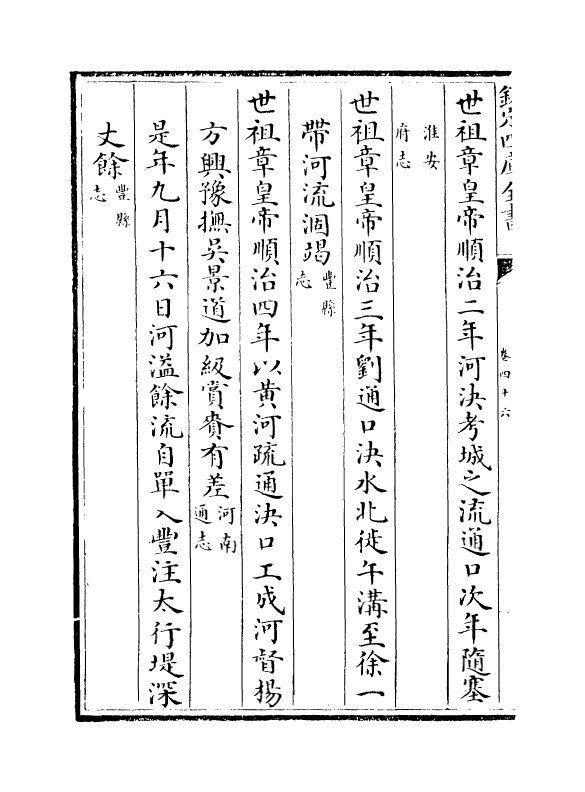 欽定四庫全書
卷四十六
世祖章皇帝順治二年河決考城之流通口次年隨塞
淮安府志
世祖章皇帝順治三年劉通口決水北徙午溝至徐一
帶河流涸竭豐縣志
世祖章皇帝順治四年以黄河疏通決口工成河督楊
方興豫撫吳景道加級賞賚有差河南通志
是年九月十六日河溢餘流自單入豐注太行堤深
丈餘豐縣志